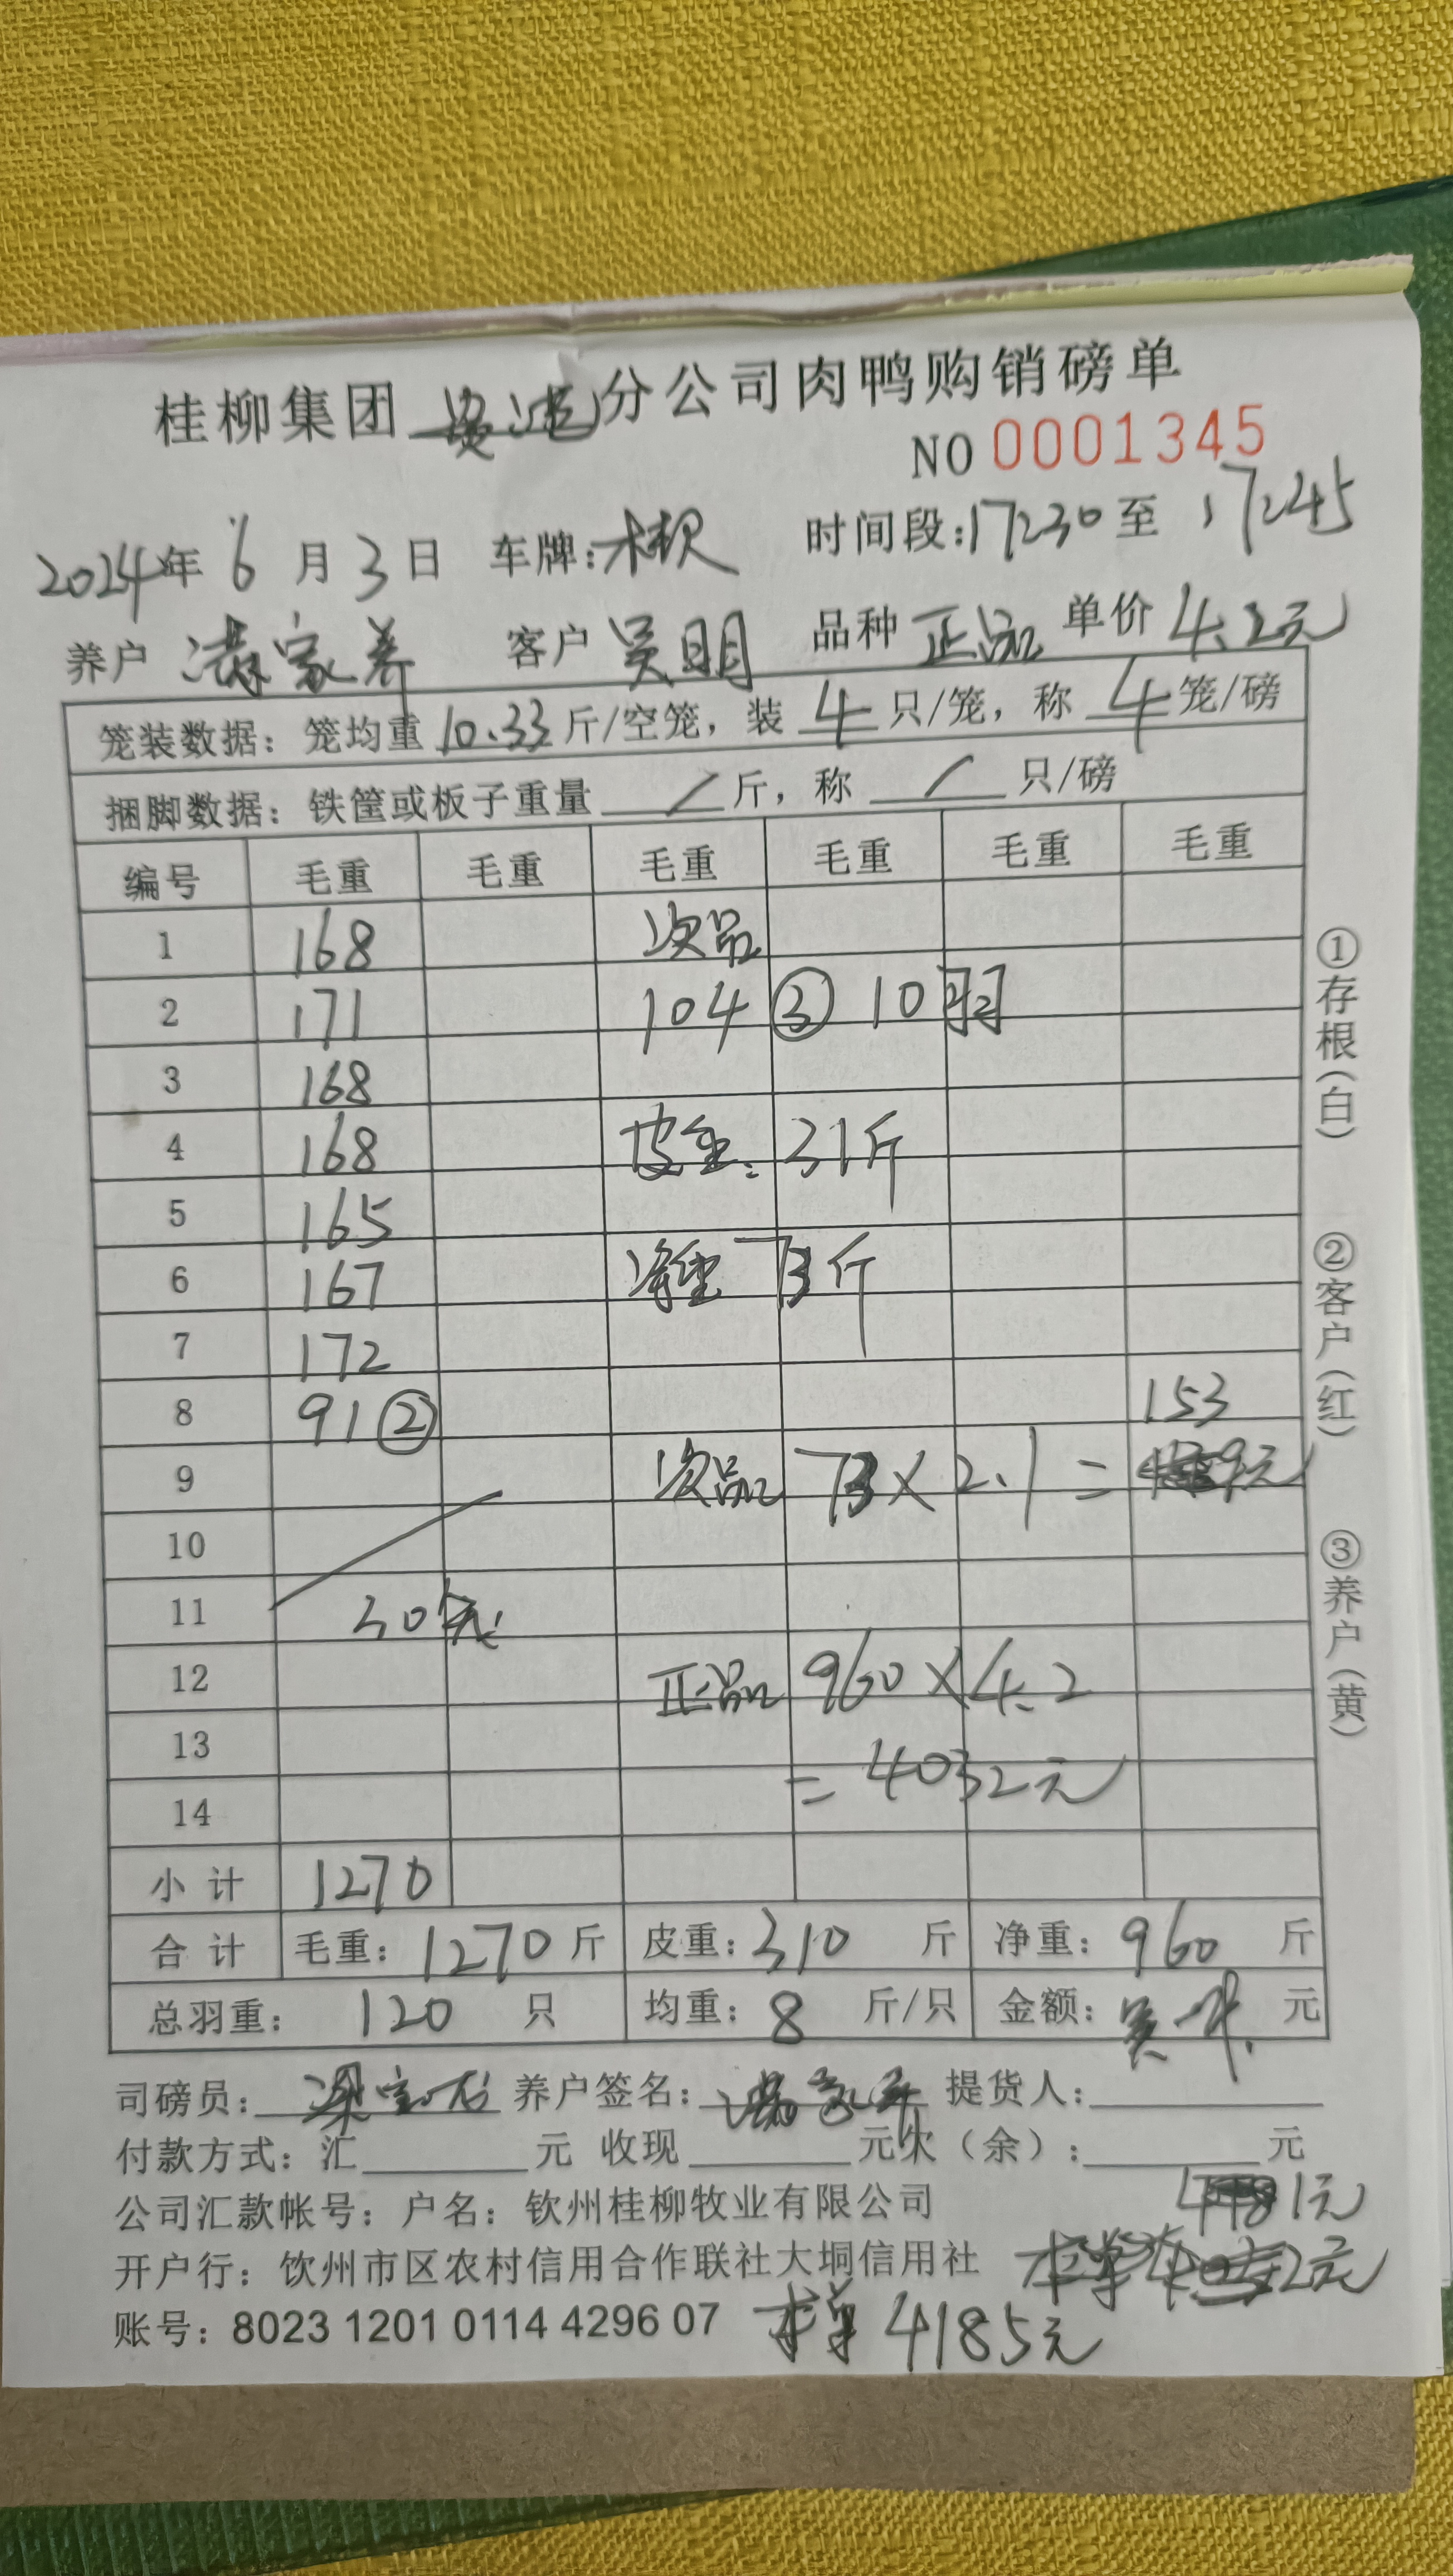 桂柳集团 分公司肉鸭购销磅单
NO 0001345
2024年 6 月 3 日 车牌: 时间段:17:30 至 17:45
养户 客户 吴明 品种 正品 单价 4.2元
笼装数据：笼均重 10.33 斤/空笼，装 4 只/笼，称 4 笼/磅
捆脚数据：铁筐或板子重量 / 斤，称 / 只/磅
编号 毛重 毛重 毛重 毛重 毛重 毛重
1 168 次品
2 171 104 ③ 10羽
3 168
4 168 皮重: 31斤
5 165
6 167 净重 73斤
7 172
8 91② 153
9 次品 73×2.1=
10
11 30笼
12 正品 960×4.2
13 =4032元
14
小 计 1270
合 计 毛重：1270 斤 皮重：310 斤 净重：960 斤
总羽重： 120 只 均重：8 斤/只 金额： 元
司磅员： 养户签名： 提货人：
付款方式：汇 元 收现 元欠（余）： 元
公司汇款帐号：户名：钦州桂柳牧业有限公司
开户行：钦州市区农村信用合作联社大垌信用社
账号：8023 1201 0114 4296 07 本单 4185元
①存根（白）
②客户（红）
③养户（黄）